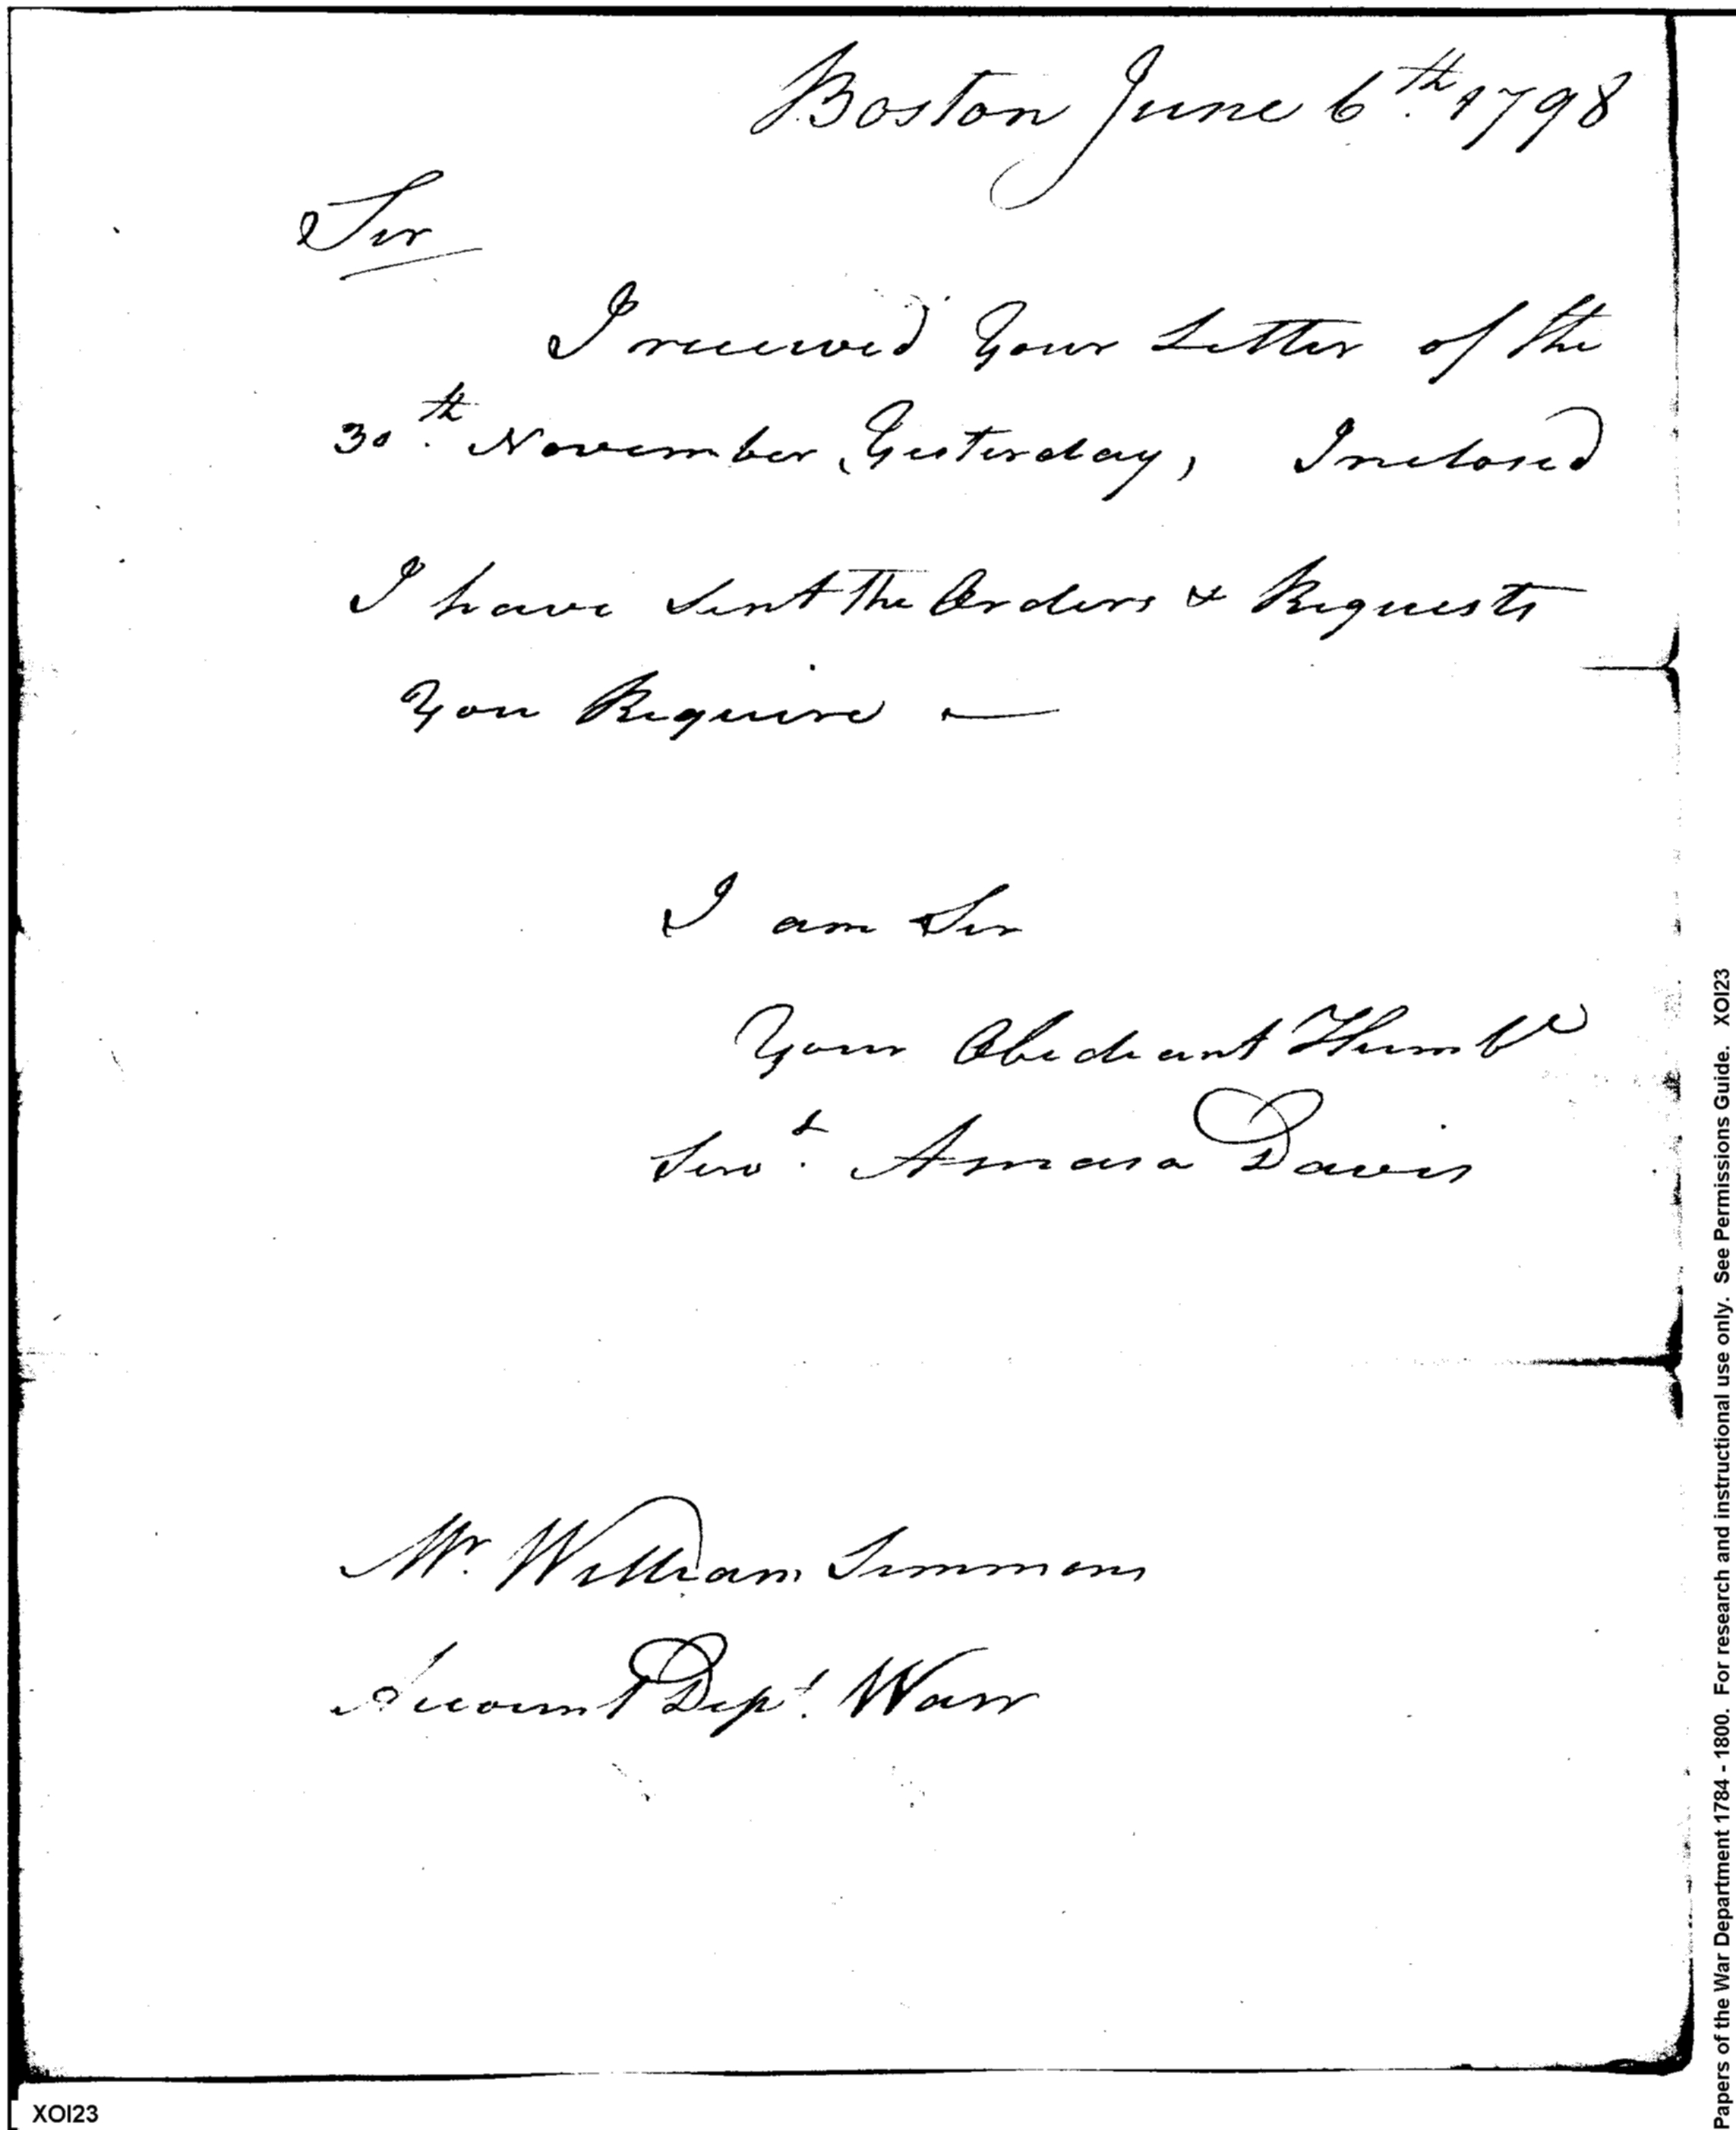 Boston June 6th. 1798
Sir
I received Your Letter of the
30th. November, Yesterday, Inclosed
I have Sent the Orders & Requests
You Require —
I am Sir
Your Obediant Humble
Servt. Amasa Davis
Mr. William Simmons
Account Dept. Warr
XOI23
Papers of the War Department 1784 - 1800. For research and instructional use only. See Permissions Guide. XOI23